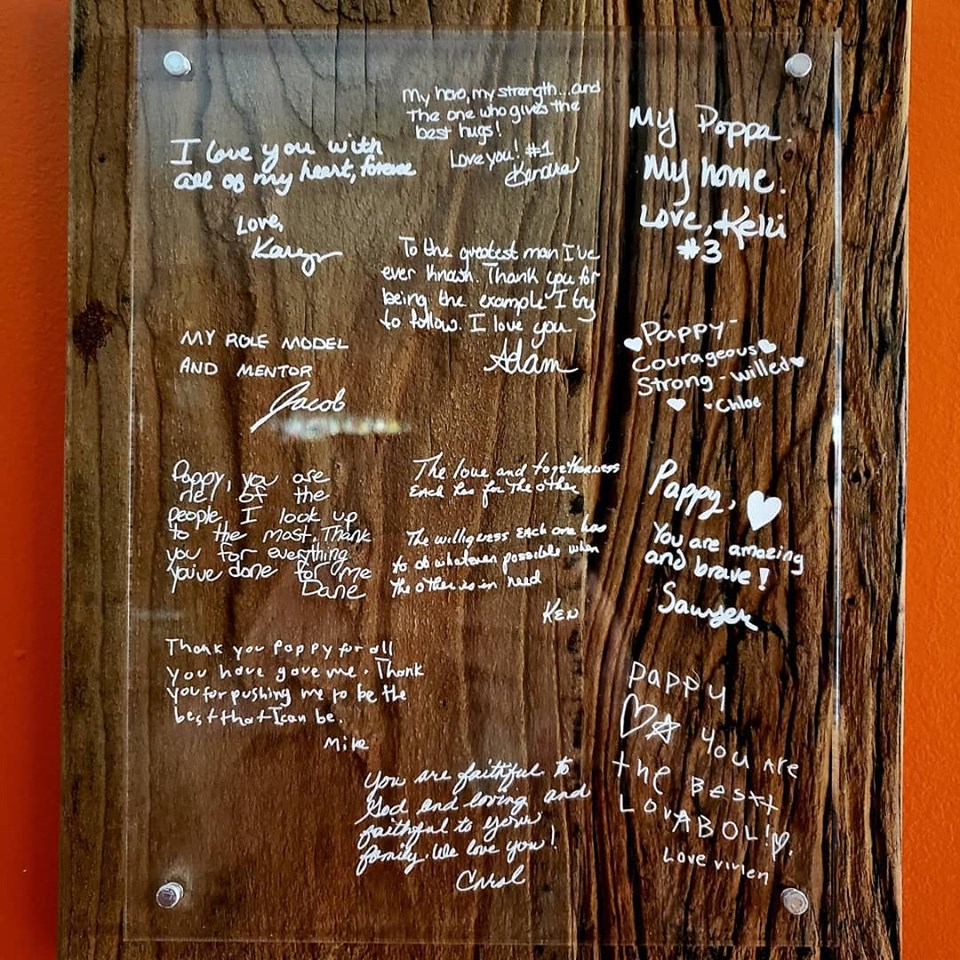 My hero, my strength...and
The one who gives the
best hugs!
Love you! #1
Kendra
I love you with
all of my heart, forever
Love,
Karyn
My Poppa.
My home.
Love, Kelli
#3
To the greatest man I've
ever known. Thank you for
being the example I try
to follow. I love you
Adam
MY ROLE MODEL
AND MENTOR
Jacob
Pappy-
Courageous
Strong-willed
-Chloe
Pappy, you are
one of the
people I look up
to the most. Thank
you for everything
you've done for me
Dane
The love and togetherness
Each has for the other
The willigness Each one has
to do whatever possible when
the other is in need
Ken
Pappy,
You are amazing
and brave!
Sawyer
Thank you Pappy for all
you have gave me. Thank
you for pushing me to be the
best that I can be.
Mike
You are faithful to
God and loving and
faithful to your
family. We love you!
Carol
pappy
you Are
the BEst
LovABOL!
Love